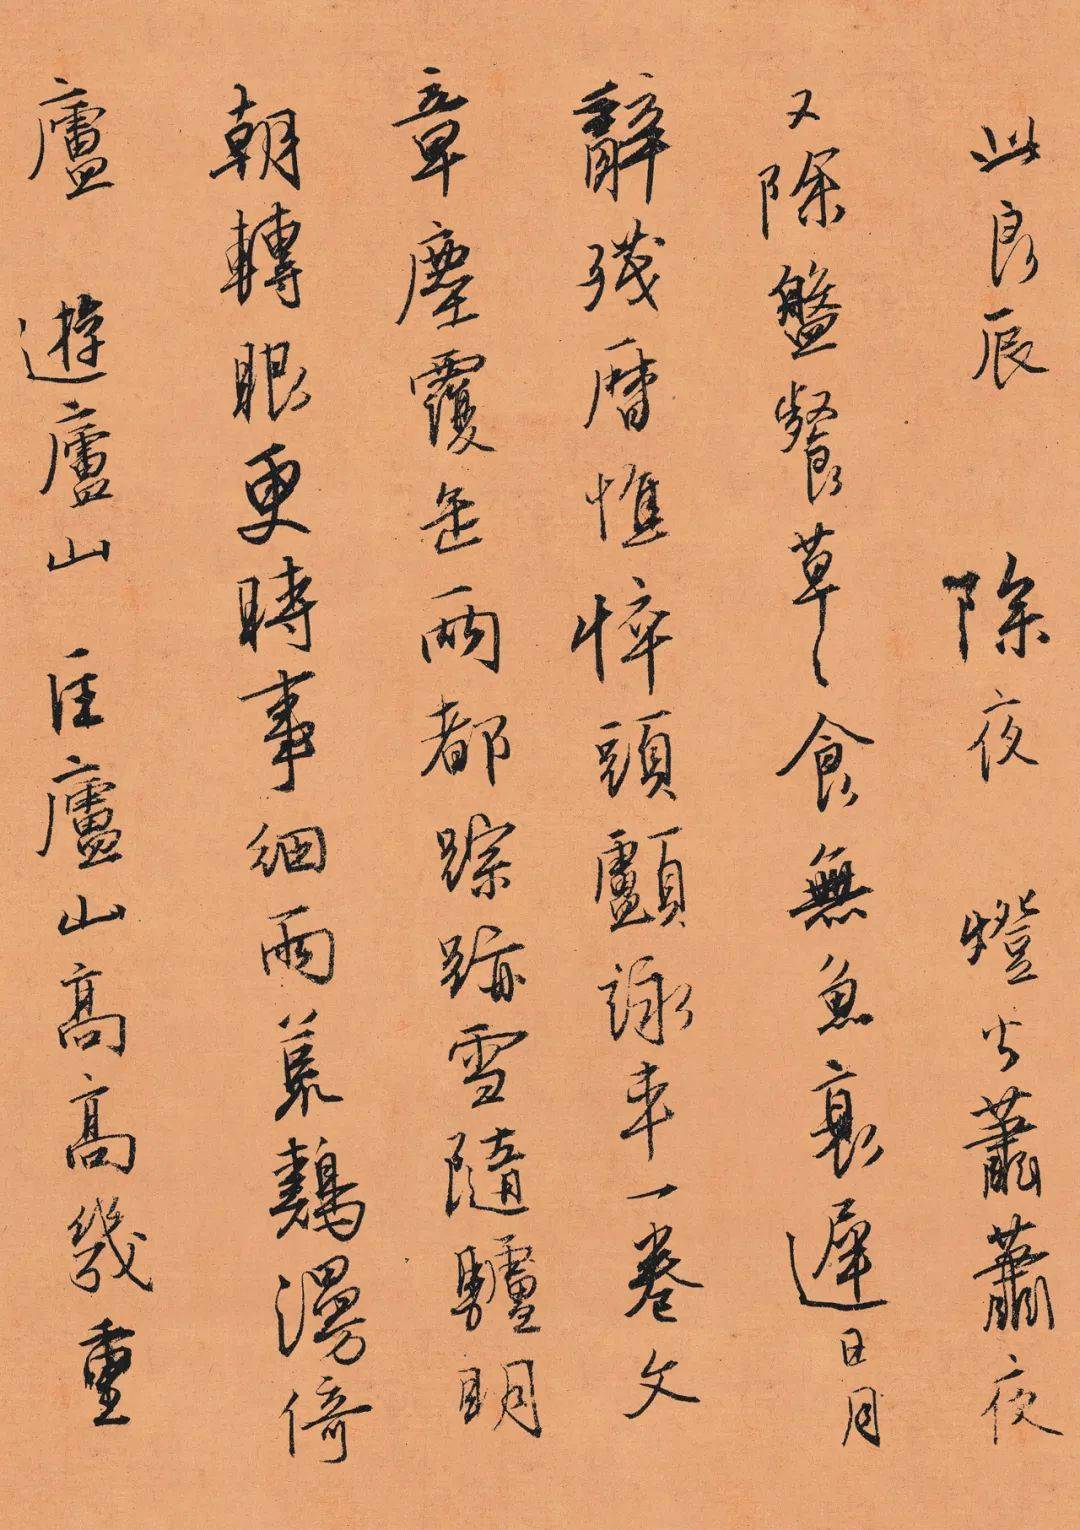 此良辰　除夜　燈火蕭蕭夜
又除盤餐草〻食無魚衰遲日月
辭殘曆憔悴頭顱詠車一卷文
章塵覆缶兩都踪跡雪隨驢明
朝轉眼更時事細雨荒鷄漫倚
廬　遊廬山　匡廬山高高幾重